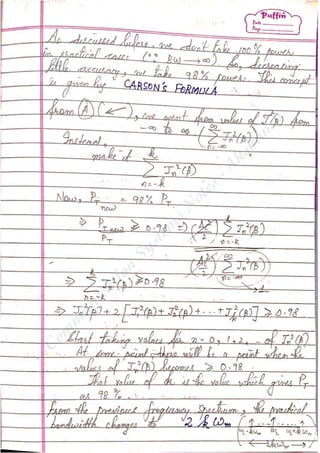 Puffin
Date
Page
As discussed before, we don't take 100% power
in practical case (∵ BW → ∞) So, decreasing
little accuracy, we take 98% power. This concept
is given by CARSON'S FORMULA
from (A) (↙), we went from value of J²(β) from
-∞ to ∞ (∑ Jn²(β)) n=-∞ ∞
Instead,
make it k
∑ Jn²(β)
n=-k
Now, PT new = 98% PT
⇒ PT new / PT ≥ 0.98 ⇒ (Ac²/2) ∑ Jn²(β) n=-k k
(Ac²/2) ∑ Jn²(β) n=-∞ ∞ → 1
⇒ k ∑ Jn²(β) ≥ 0.98
n=-k
⇒ J0²(β) + 2 [J1²(β) + J2²(β) + ... + Jk²(β)] ≥ 0.98
Start taking values for n=0, 1, 2, ... of Jn²(β)
At some point, there will be a point when the
values of Jn²(β) becomes ≥ 0.98
That value of k is the value which gives PT
as 98%.
From the previous frequency spectrum, the practical
bandwidth changes to 2kωm
← 2kωm →